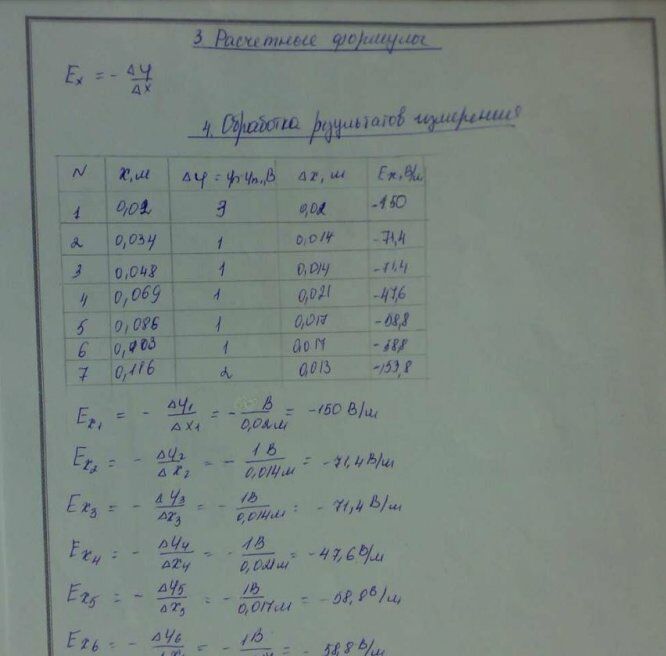 3. Расчетные формулы
Ex = - Δφ/Δx
4. Обработка результатов измерения
N x, м Δφ = φ-φп, В Δx, м Ex, В/м
1 0,02 3 0,02 -150
2 0,034 1 0,014 -71,4
3 0,048 1 0,014 -71,4
4 0,069 1 0,021 -47,6
5 0,086 1 0,017 -58,8
6 0,103 1 0,017 -58,8
7 0,116 2 0,013 -153,8
Ex1 = - Δφ1/Δx1 = - В/0,02м = -150 В/м
Ex2 = - Δφ2/Δx2 = - 1В/0,014м = -71,4 В/м
Ex3 = - Δφ3/Δx3 = - 1В/0,014м = -71,4 В/м
Ex4 = - Δφ4/Δx4 = - 1В/0,021м = -47,6 В/м
Ex5 = - Δφ5/Δx5 = - 1В/0,017м = -58,8 В/м
Ex6 = - Δφ6 = - 1В = - 58,8 В/м